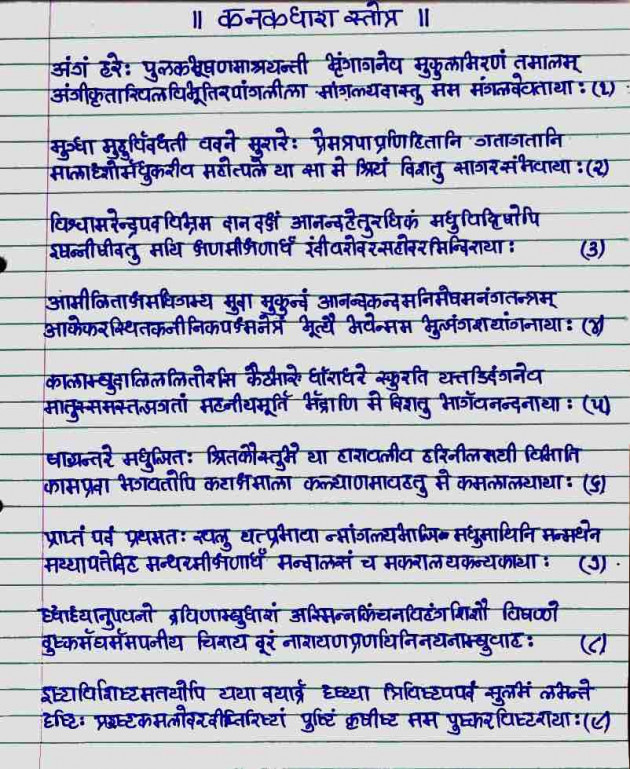 ॥ कनकधारा स्तोत्र ॥
अंगं हरेः पुलकभूषणमाश्रयन्ती भृंगागनेव मुकुलाभरणं तमालम्
अंगीकृताखिलविभूतिरपांगलीला मांगल्यदास्तु मम मंगलदेवतायाः (१)
मुग्धा मुहुर्विदधती वदने मुरारेः प्रेमत्रपाप्रणिहितानि गतागतानि
मालाद्दशोर्मधुकरीव महोत्पले या सा मे श्रियं दिशतु सागरसंभवायाः (२)
विश्वामरेन्द्रपदविभ्रम दान दक्षं आनन्दहेतुरधिकं मधुविद्विषोपि
इषन्नीषीदतु मयि क्षणमीक्षणार्धं इंदीवरोदरसहोदरमिन्दिरायाः (३)
आमीलिताक्षमधिगम्य मुदा मुकुन्दं आनन्दकन्दमनिमेषमनंगतन्त्रम्
आकेकरस्थितकनीनिकपक्ष्मनेत्रं भूत्यै भवेन्मम भुजंगशयांगनायाः (४)
कालाम्बुदालिललितोरसि कैटभारेः धाराधरे स्फुरति यत्तडिदंगनेव
मातुस्समस्तजगतां महनीयमूर्ति भद्राणि मे दिशतु भार्गवनन्दनायाः (५)
बाह्यन्तरे मधुजितः श्रितकौस्तुभे या हारावलीव हरिनीलमयी विभाति
कामप्रदा भगवतोपि कटाक्षमाला कल्याणमावहतु मे कमलालयायाः (६)
प्राप्तं पदं प्रथमतः खलु यत्प्रभावा न्मांगल्यभाजि मधुमाथिनि मन्मथेन
मय्यापतेदिह मन्थरमीक्षणार्धं मन्दालसं च मकरालयकन्यकायाः (७)
दद्याद्दयानुपवनो द्रविणाम्बुधारां अस्मिन्नकिंचनविहंगशिशौ विषण्णे
दुष्कर्मघर्ममपनीय चिराय दूरं नारायणप्रणयिनिनयनाम्बुवाहः (८)
इष्टाविशिष्टमतयोपि यया दयार्द्र दृष्ट्या त्रिविष्टपपदं सुलभं लभन्ते
दृष्टिः प्रहृष्टकमलोदरदीप्तिरिष्टां पुष्टिं कृषीष्ट मम पुष्करविष्टरायाः (९)